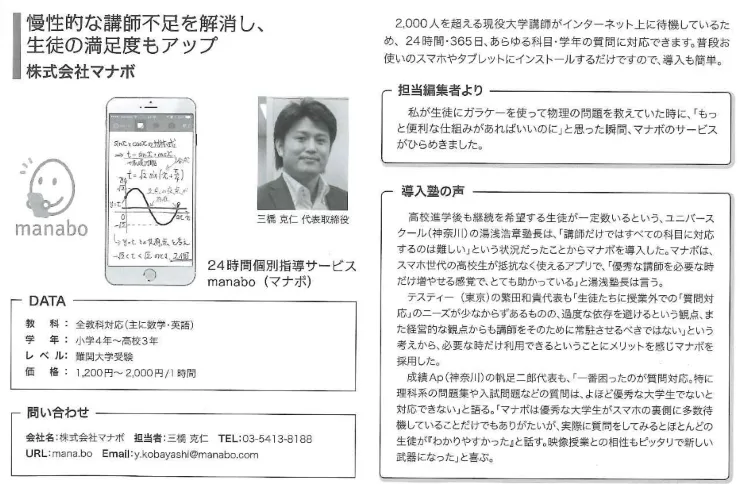 慢性的な講師不足を解消し、
生徒の満足度もアップ
株式会社マナボ
manabo
三橋 克仁 代表取締役
24時間個別指導サービス
manabo(マナボ)
DATA
教 科:全教科対応(主に数学・英語)
学 年:小学4年〜高校3年
レ ベ ル:難関大学受験
価 格:1,200円〜2,000円/1時間
問い合わせ
会社名:株式会社マナボ 担当者:三橋 克仁 TEL:03-5413-8188
URL:mana.bo Email:y.kobayashi@manabo.com
2,000人を超える現役大学講師がインターネット上に待機しているた
め、24時間・365日、あらゆる科目・学年の質問に対応できます。普段お
使いのスマホやタブレットにインストールするだけですので、導入も簡単。
担当編集者より
私が生徒にガラケーを使って物理の問題を教えていた時に、「もっ
と便利な仕組みがあればいいのに」と思った瞬間、マナボのサービス
がひらめきました。
導入塾の声
高校進学後も継続を希望する生徒が一定数いるという、ユニバース
クール(神奈川)の湯浅浩章塾長は、「講師だけではすべての科目に対応
するのは難しい」という状況だったことからマナボを導入した。マナボは、
スマホ世代の高校生が抵抗なく使えるアプリで、「優秀な講師を必要な時
だけ増やせる感覚で、とても助かっている」と湯浅塾長は言う。
テスティー(東京)の繁田和貴代表も「生徒たちに授業外での「質問対
応」のニーズが少なからずあるものの、過度な依存を避けるという観点、ま
た経営的な観点からも講師をそのために常駐させるべきではない」という
考えから、必要な時だけ利用できるということにメリットを感じマナボを
採用した。
成績Ap(神奈川)の帆足二郎代表も、「一番困ったのが質問対応。特に
理科系の問題集や入試問題などの質問は、よほど優秀な大学生でないと
対応できない」と語る。「マナボは優秀な大学生がスマホの裏側に多数待
機していることだけでもありがたいが、実際に質問をしてみるとほとんどの
生徒が『わかりやすかった』と話す。映像授業との相性もピッタリで新しい
武器になった」と喜ぶ。